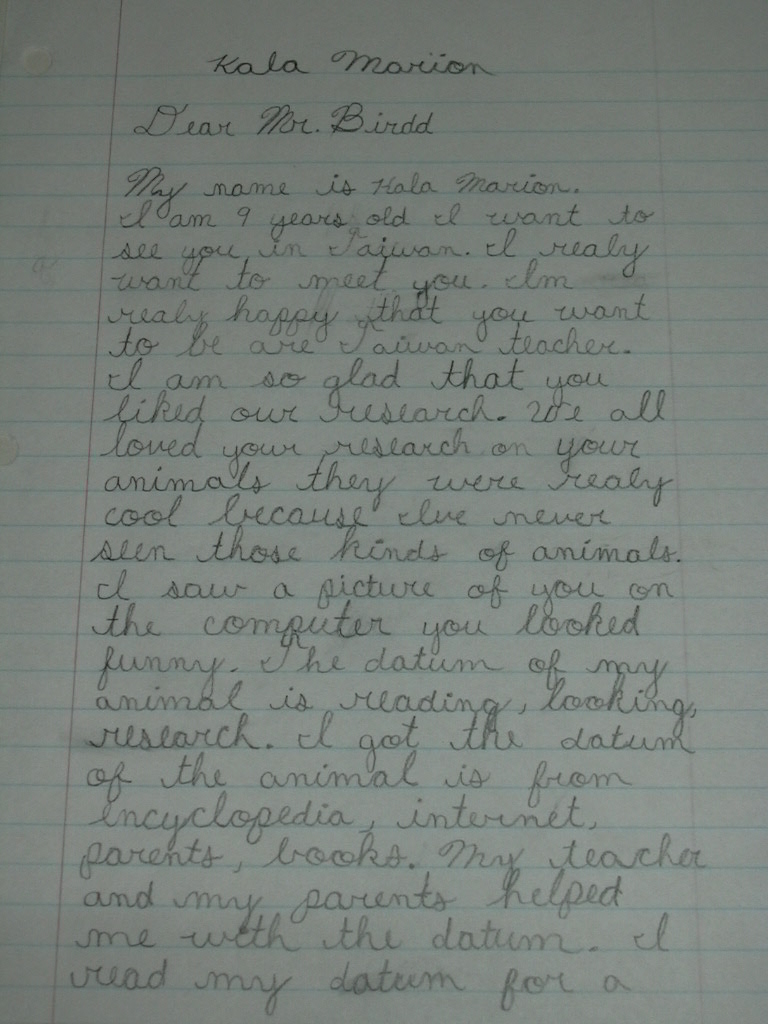 Kala Marion
Dear Mr. Birdd
My name is Kala Marion.
I am 9 years old I want to
see you in Taiwan. I realy
want to meet you. Im
realy happy that you want
to be are Taiwan teacher.
I am so glad that you
liked our research. We all
loved your research on your
animals they were realy
cool because Ive never
seen those kinds of animals.
I saw a picture of you on
the computer you looked
funny. The datum of my
animal is reading, looking,
research. I got the datum
of the animal is from
encyclopedia, internet,
parents, books. My teacher
and my parents helped
me with the datum. I
read my datum for a